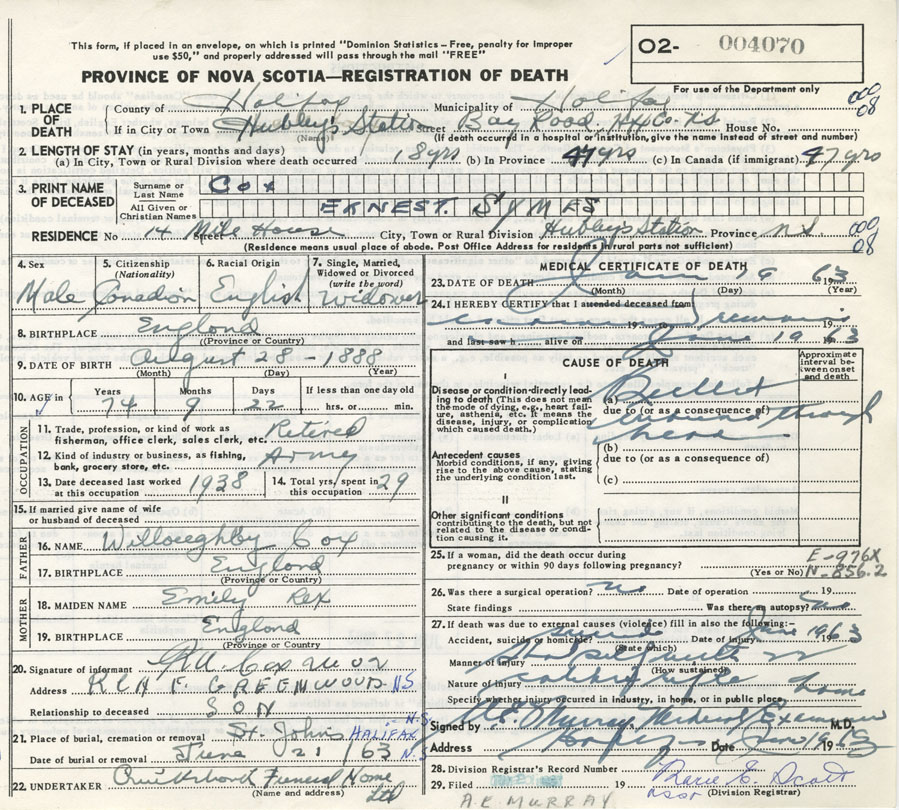 This form, if placed in an envelope, on which is printed "Dominion Statistics – Free, penalty for improper
use $50," and properly addressed will pass through the mail "FREE"
O2- 004070
PROVINCE OF NOVA SCOTIA—REGISTRATION OF DEATH
For use of the Department only
1. PLACE OF DEATH
County of Halifax Municipality of Halifax
If in City or Town Hubby's Station Street Bay Road. Hx Co. N.S House No.
(Name) (If death occurred in a hospital or institution, give the name instead of street and number)
000 08
2. LENGTH OF STAY (in years, months and days)
(a) In City, Town or Rural Division where death occurred 18 yrs (b) In Province 47 yrs (c) In Canada (if immigrant) 47 yrs
3. PRINT NAME OF DECEASED
Surname or Last Name Cox
All Given or Christian Names ERNEST. SYMES
RESIDENCE No 14 Mile House Street City, Town or Rural Division Hubby's Station Province N S
(Residence means usual place of abode. Post Office Address for residents in rural parts not sufficient)
000 08
4. Sex 5. Citizenship (Nationality) 6. Racial Origin 7. Single, Married, Widowed or Divorced (write the word)
Male Canadian English Widower
8. BIRTHPLACE England
(Province or Country)
9. DATE OF BIRTH August 28 - 1888
(Month) (Day) (Year)
10. AGE in Years Months Days If less than one day old
74 9 22 hrs. or min.
OCCUPATION
11. Trade, profession, or kind of work as fisherman, office clerk, sales clerk, etc. Retired
12. Kind of industry or business, as fishing, bank, grocery store, etc. Army
13. Date deceased last worked at this occupation 1938 14. Total yrs. spent in this occupation 29
15. If married give name of wife or husband of deceased
FATHER
16. NAME Willoughby Cox
17. BIRTHPLACE England
(Province or Country)
MOTHER
18. MAIDEN NAME Emily Rex
19. BIRTHPLACE England
(Province or Country)
20. Signature of informant
Address GREENWOOD NS
Relationship to deceased SON
21. Place of burial, cremation or removal St. John's HALIFAX N.S.
Date of burial or removal June 21 / 63
22. UNDERTAKER Funeral Home Ltd
(Name and address)
MEDICAL CERTIFICATE OF DEATH
23. DATE OF DEATH June 19 1963
(Month) (Day) (Year)
24. I HEREBY CERTIFY that I attended deceased from
19 remains 19
and last saw h alive on June 19 63
CAUSE OF DEATH
Approximate interval between onset and death
I
Disease or condition directly leading to death (This does not mean the mode of dying, e.g., heart failure, asthenia, etc. It means the disease, injury, or complication which caused death.)
(a) Bullet
due to (or as a consequence of)
wound through
Antecedent causes
Morbid conditions, if any, giving rise to the above cause, stating the underlying condition last.
(b)
due to (or as a consequence of)
(c)
II
Other significant conditions
contributing to the death, but not related to the disease or condition causing it.
25. If a woman, did the death occur during pregnancy or within 90 days following pregnancy?
(Yes or No)
E-976X
N-856.2
26. Was there a surgical operation? no Date of operation 19
State findings Was there an autopsy? no
27. If death was due to external causes (violence) fill in also the following:—
Accident, suicide or homicide? Date of injury June 1963
(State which)
Manner of injury
(How sustained)
Nature of injury calibre rifle
Specify whether injury occurred in industry, in home, or in public place home
Signed by Murray Medical Examiner M.D.
Address Date June 19 19
28. Division Registrar's Record Number
29. Filed 19
(Division Registrar)
A.E. MURRAY